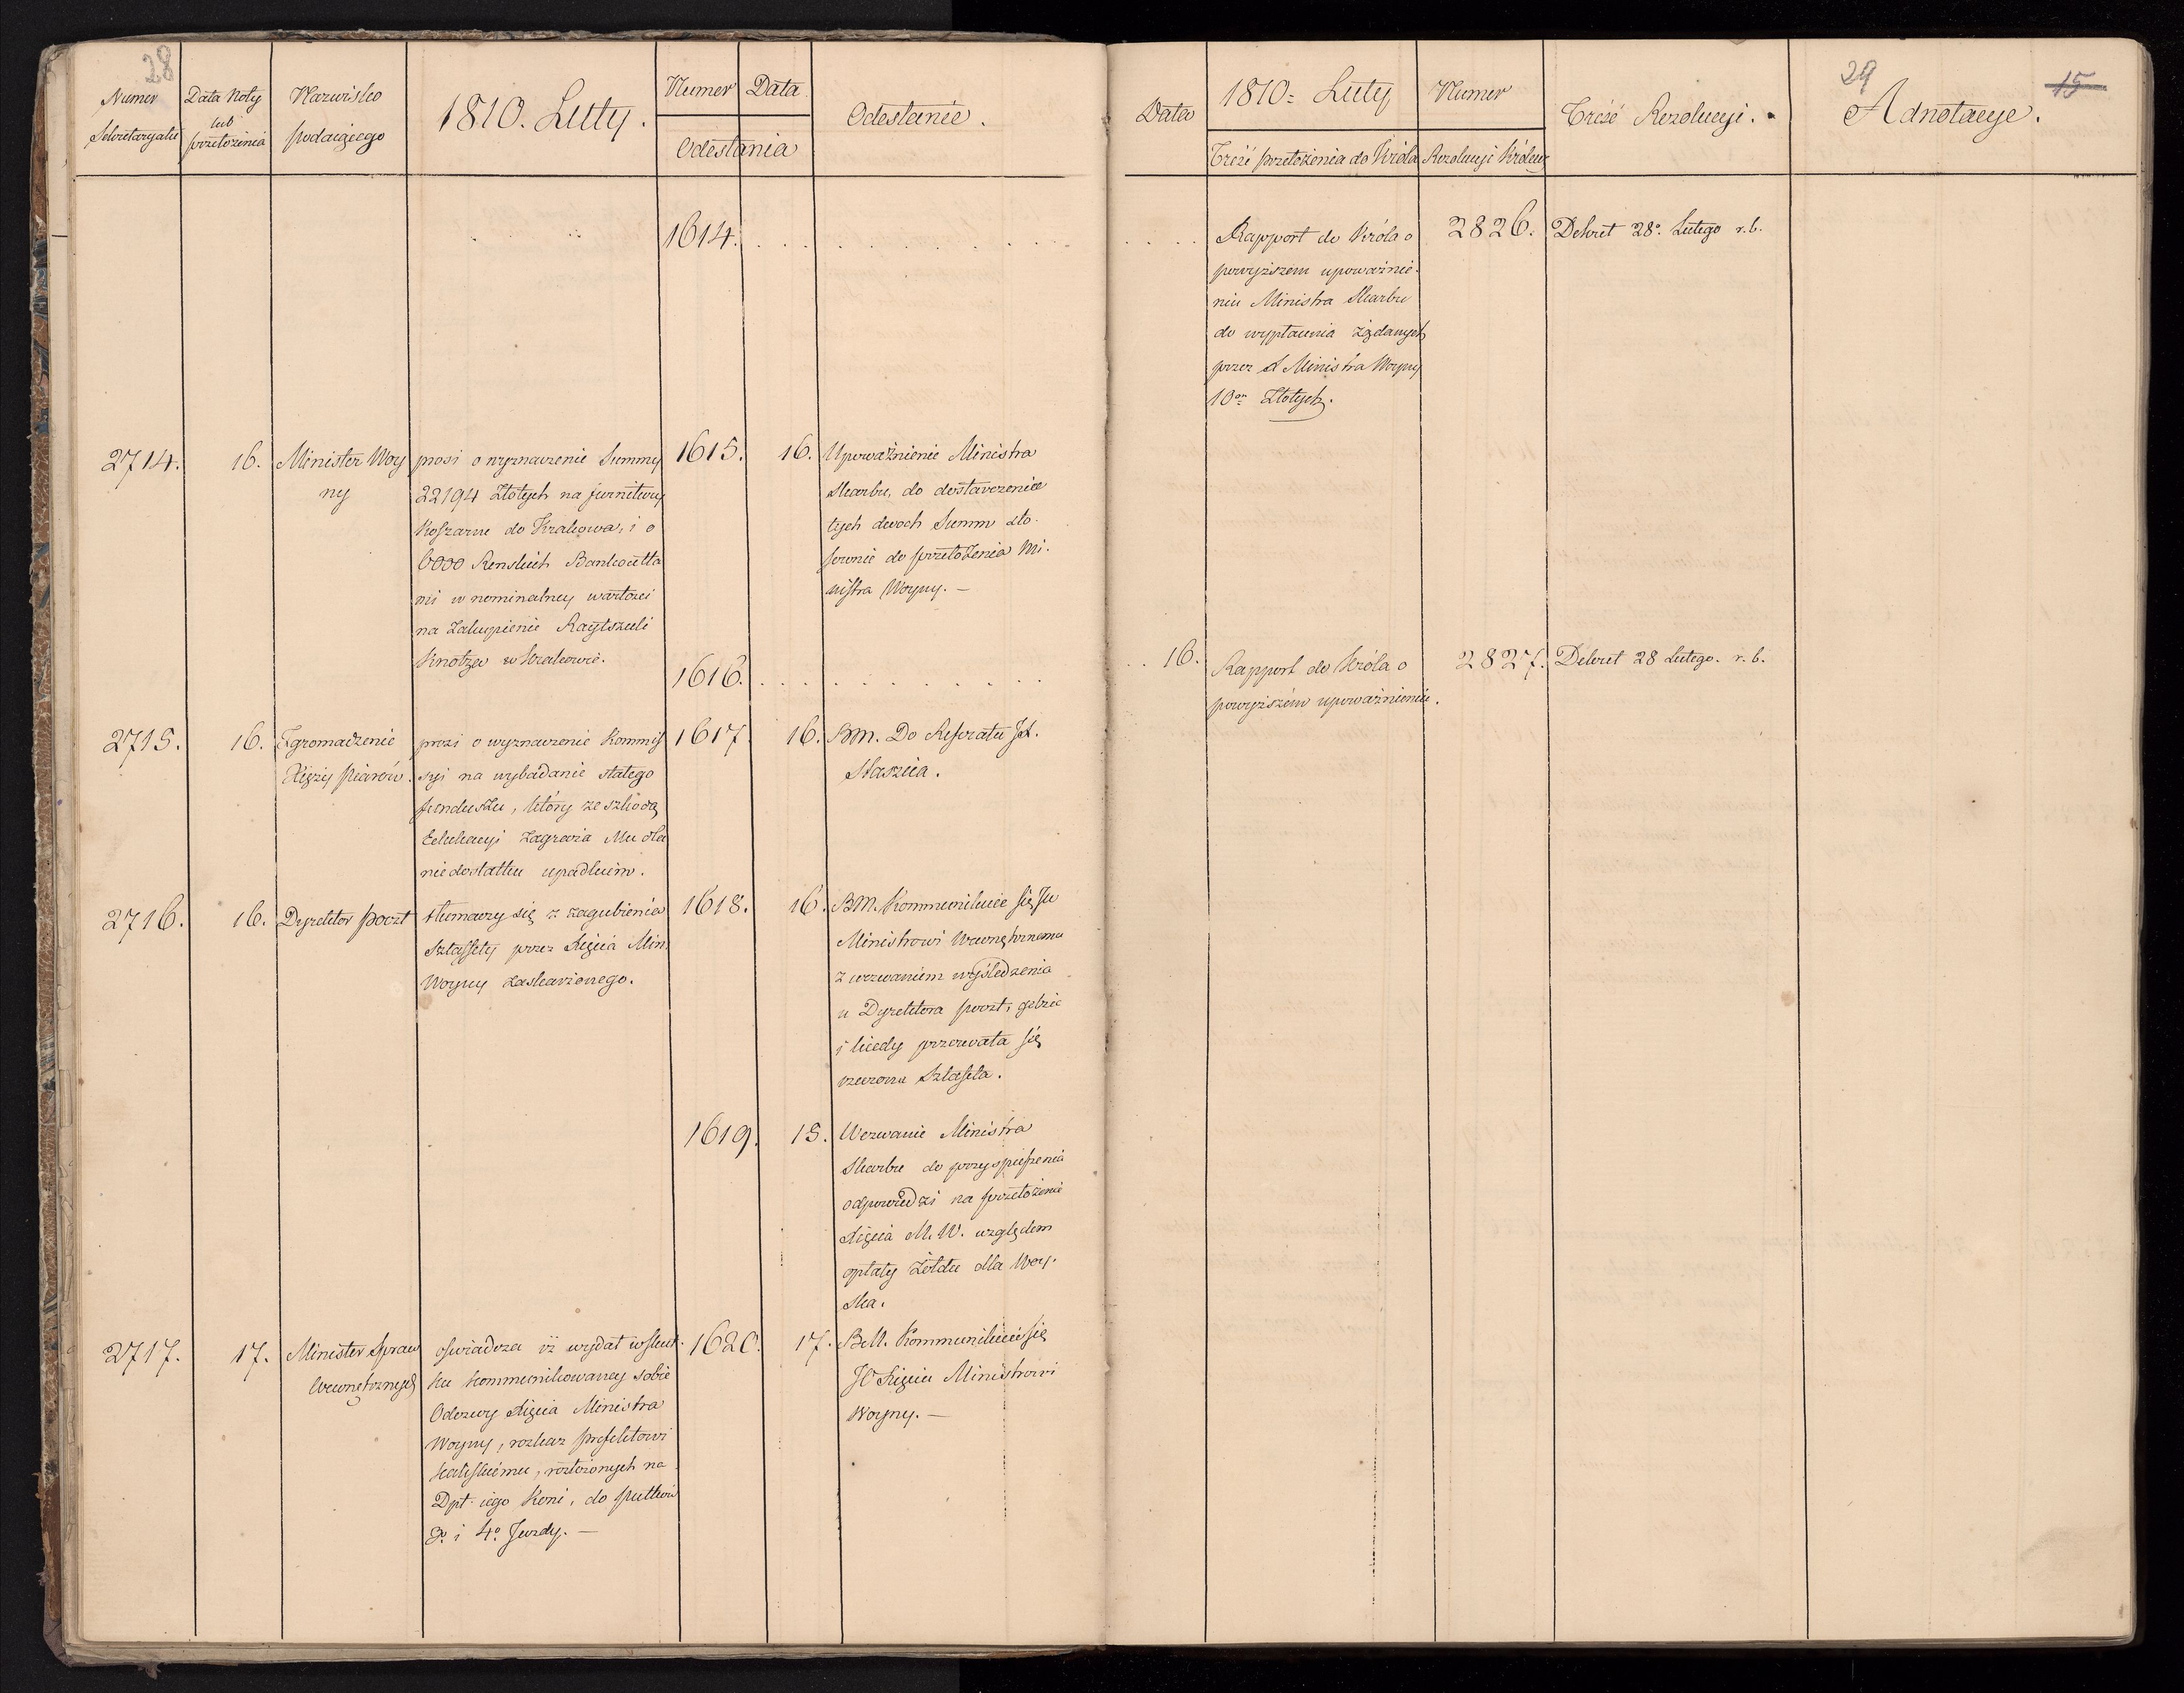 28
Numer
Sekretaryatu
Data Noty
lub
przełożenia
Nazwisko
podaiącego
1810. Luty.
Numer
Data
Odesłania
Odesłanie.
1614. . . . . . . . . . .
2714.
16.
Minister Woy
ny
prosi o wyznaczenie Summy
22194 Złotych na furnitury
Koszarne do Krakowa, i o
6000 Renskich Bankocetla
mi w nominalney wartości
na Zakupienie Raytszuli
Knotza w Krakowie.
1615.
16.
Upoważnienie Ministra
Skarbu, do dostarczenia
tych dwoch Summ sto-
sownie do przełożenia Mi-
nistra Woyny. —
1616. . . . . . . . . . .
2715.
16.
Zgromadzenie
Xięży Piarów.
prosi o wyznaczenie Kommis
syi na wybadanie stałego
funduszu, który ze szkodą
Edukacyi zagraża Mu dla
niedostatku upadkiem.
1617.
16.
BM. Do Referatu JX.
Staszica.
2716.
16.
Dyrektor poczt
tłumaczy się z zagubienia
Sztaffety przez Xięcia Min.
Woyny zaskarżonego.
1618.
16.
BM. Kommunikuie się Ju
Ministrowi Wewnętrznemu
z wezwaniem wyśledzenia
u Dyrektora poczt, gdzie
i kiedy przerwała się
rzeczona Sztafeta.
1619.
15.
Wezwanie Ministra
Skarbu do przyspieszenia
odpowiedzi na przełożenie
Xięcia M. W. względem
opłaty żołdu dla Woy-
ska.
2717.
17.
Minister Spraw
Wewnętrznych
oswiadcza iż wydał w skut-
ku kommunikowaney sobie
Odezwy Xięcia Ministra
Woyny, rozkaz prefektowi
Kaliskiemu, rozłożonych na
Dpt. iego Koni, do pułków
3o i 4o Jazdy. —
1620.
17.
BM. Kommunikuie się
JO Xięciu Ministrowi
Woyny. —
29
15
Data
1810. Luty
Treść przełożenia do Króla
Numer
Rezolucyi Królew.
Treść Rezolucyi.
Adnotacye.
. . . .
Rapport do Króla o
powyższem upoważnie-
niu Ministra Skarbu
do wypłacenia żądanych
przez Ministra Woyny
Złotych.
2826.
Dekret 28o. Lutego r. b.
. . 16.
Rapport do Króla o
powyższém upoważnieniu.
2827.
Dekret 28 Lutego. r. b.